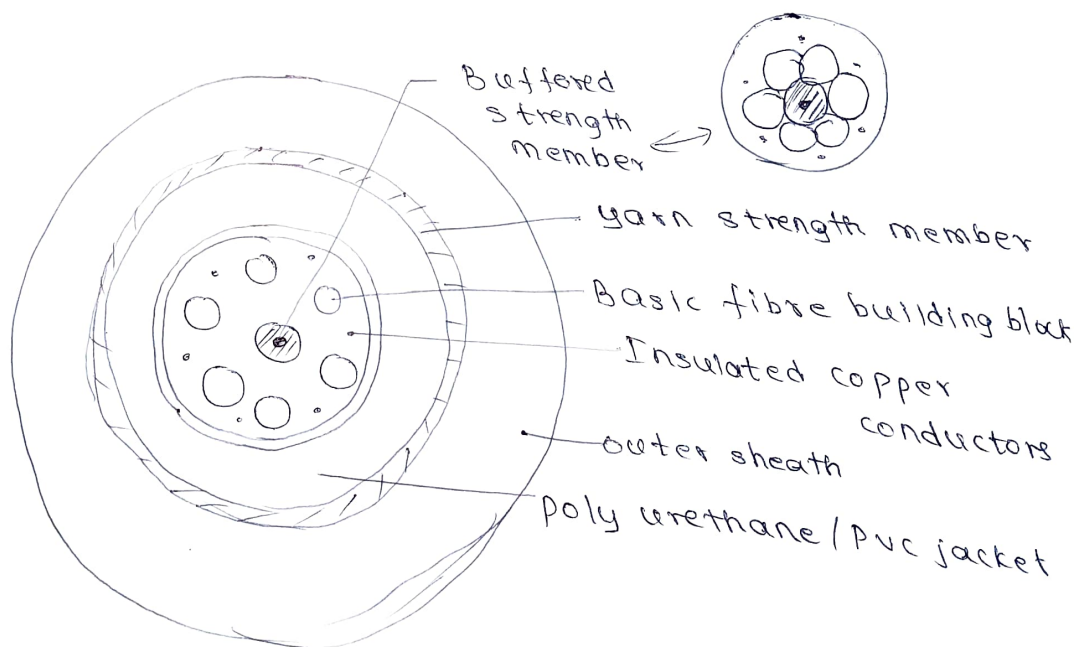 Buffered
strength
member
yarn strength member
Basic fibre building block
Insulated copper
conductors
outer sheath
poly urethane / PVC jacket